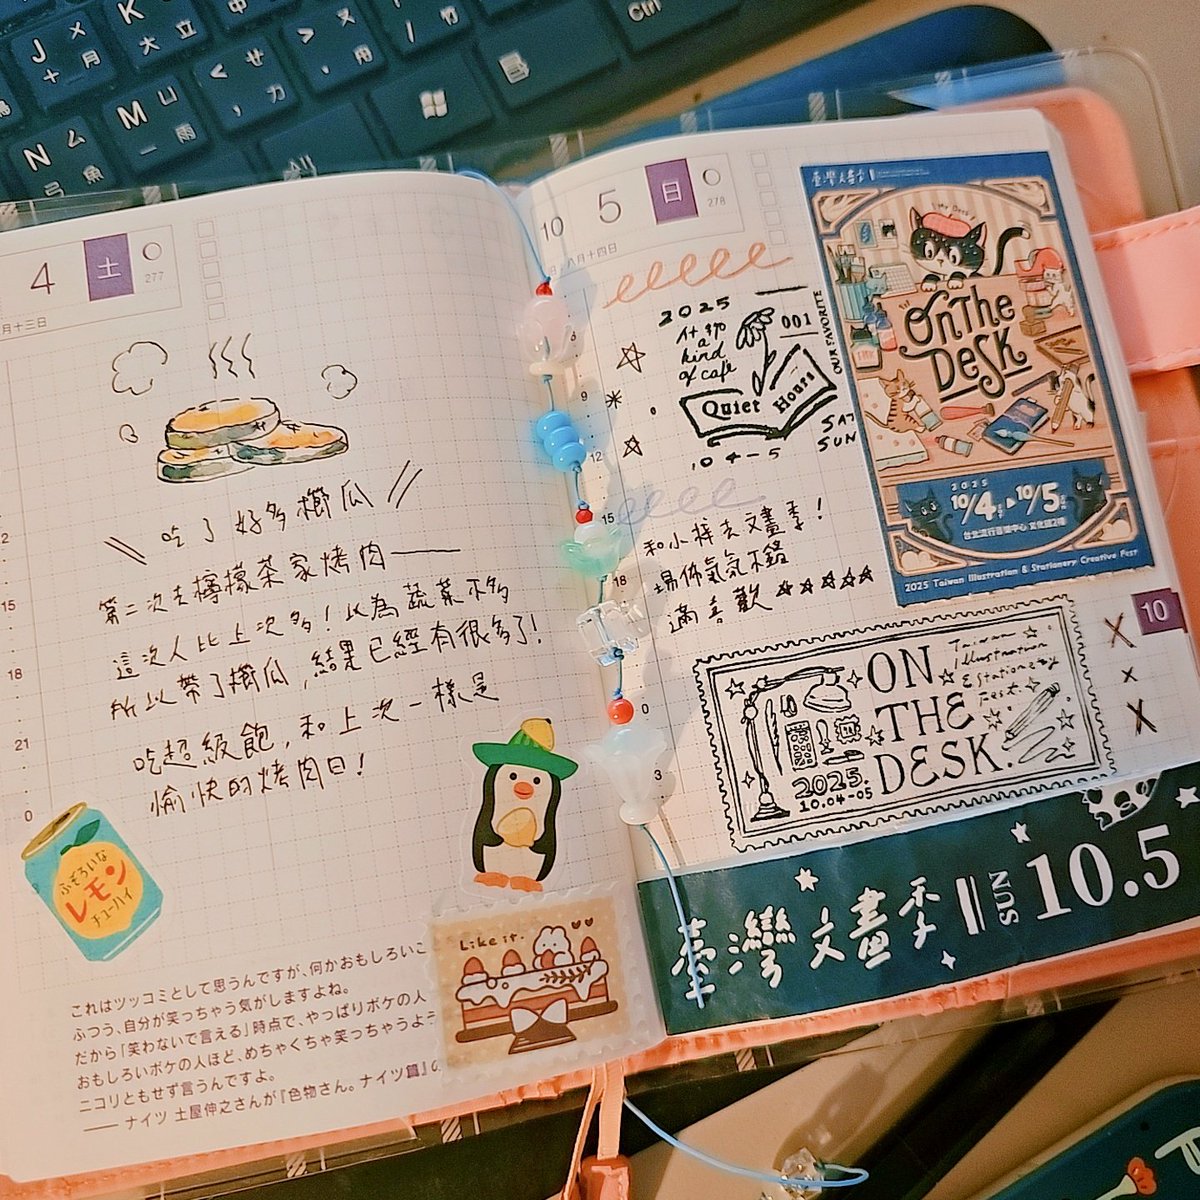 J
十
月
X
大
K
立
ㄑ
ㄝ
ㄌ
ㄠ
ㄙ
N
弓
魚
M
ㄩ
一
雨
Ctrl
4
土
277
月十三日
\\ 吃了好多櫛瓜 //
第二次去檸檬茶家烤肉——
這次人比上次多！以為蔬菜不多
所以帶了櫛瓜,結果已經有很多了！
吃超級飽,和上次一樣是
愉快的烤肉日！
15
18
21
0
ふぞろいな
レモン
チューハイ
Like it.
これはツッコミとして思うんですが、何かおもしろいこ
ふつう、自分が笑っちゃう気がしますよね。
だから「笑わないで言える」時点で、やっぱりボケの人
おもしろいボケの人ほど、めちゃくちゃ笑っちゃうよう
ニコリともせず言うんですよ。
——ナイツ 土屋伸之さんが『色物さん。ナイツ篇』の
10
5
日
278
八月十四日
2025
a
kind
of café
001
OUR FAVORITE
Quiet Hours
SAT
SUN
10 4-5
9
12
15
18
0
3
和小梓去文畫季！
場佈氣氛不錯
滿喜歡★★★★★
臺灣文畫季
My Desk
ON THE
DESK
INK
2025
10/4 ▶ 10/5
台北流行音樂中心 文化館2樓
2025 Taiwan Illustration & Stationery Creative Fest
10
ON
THE
DESK.
Taiwan
Illustration
& Stationery
Fest.
2025.
10.04-05
臺灣文畫季
SUN
10.5